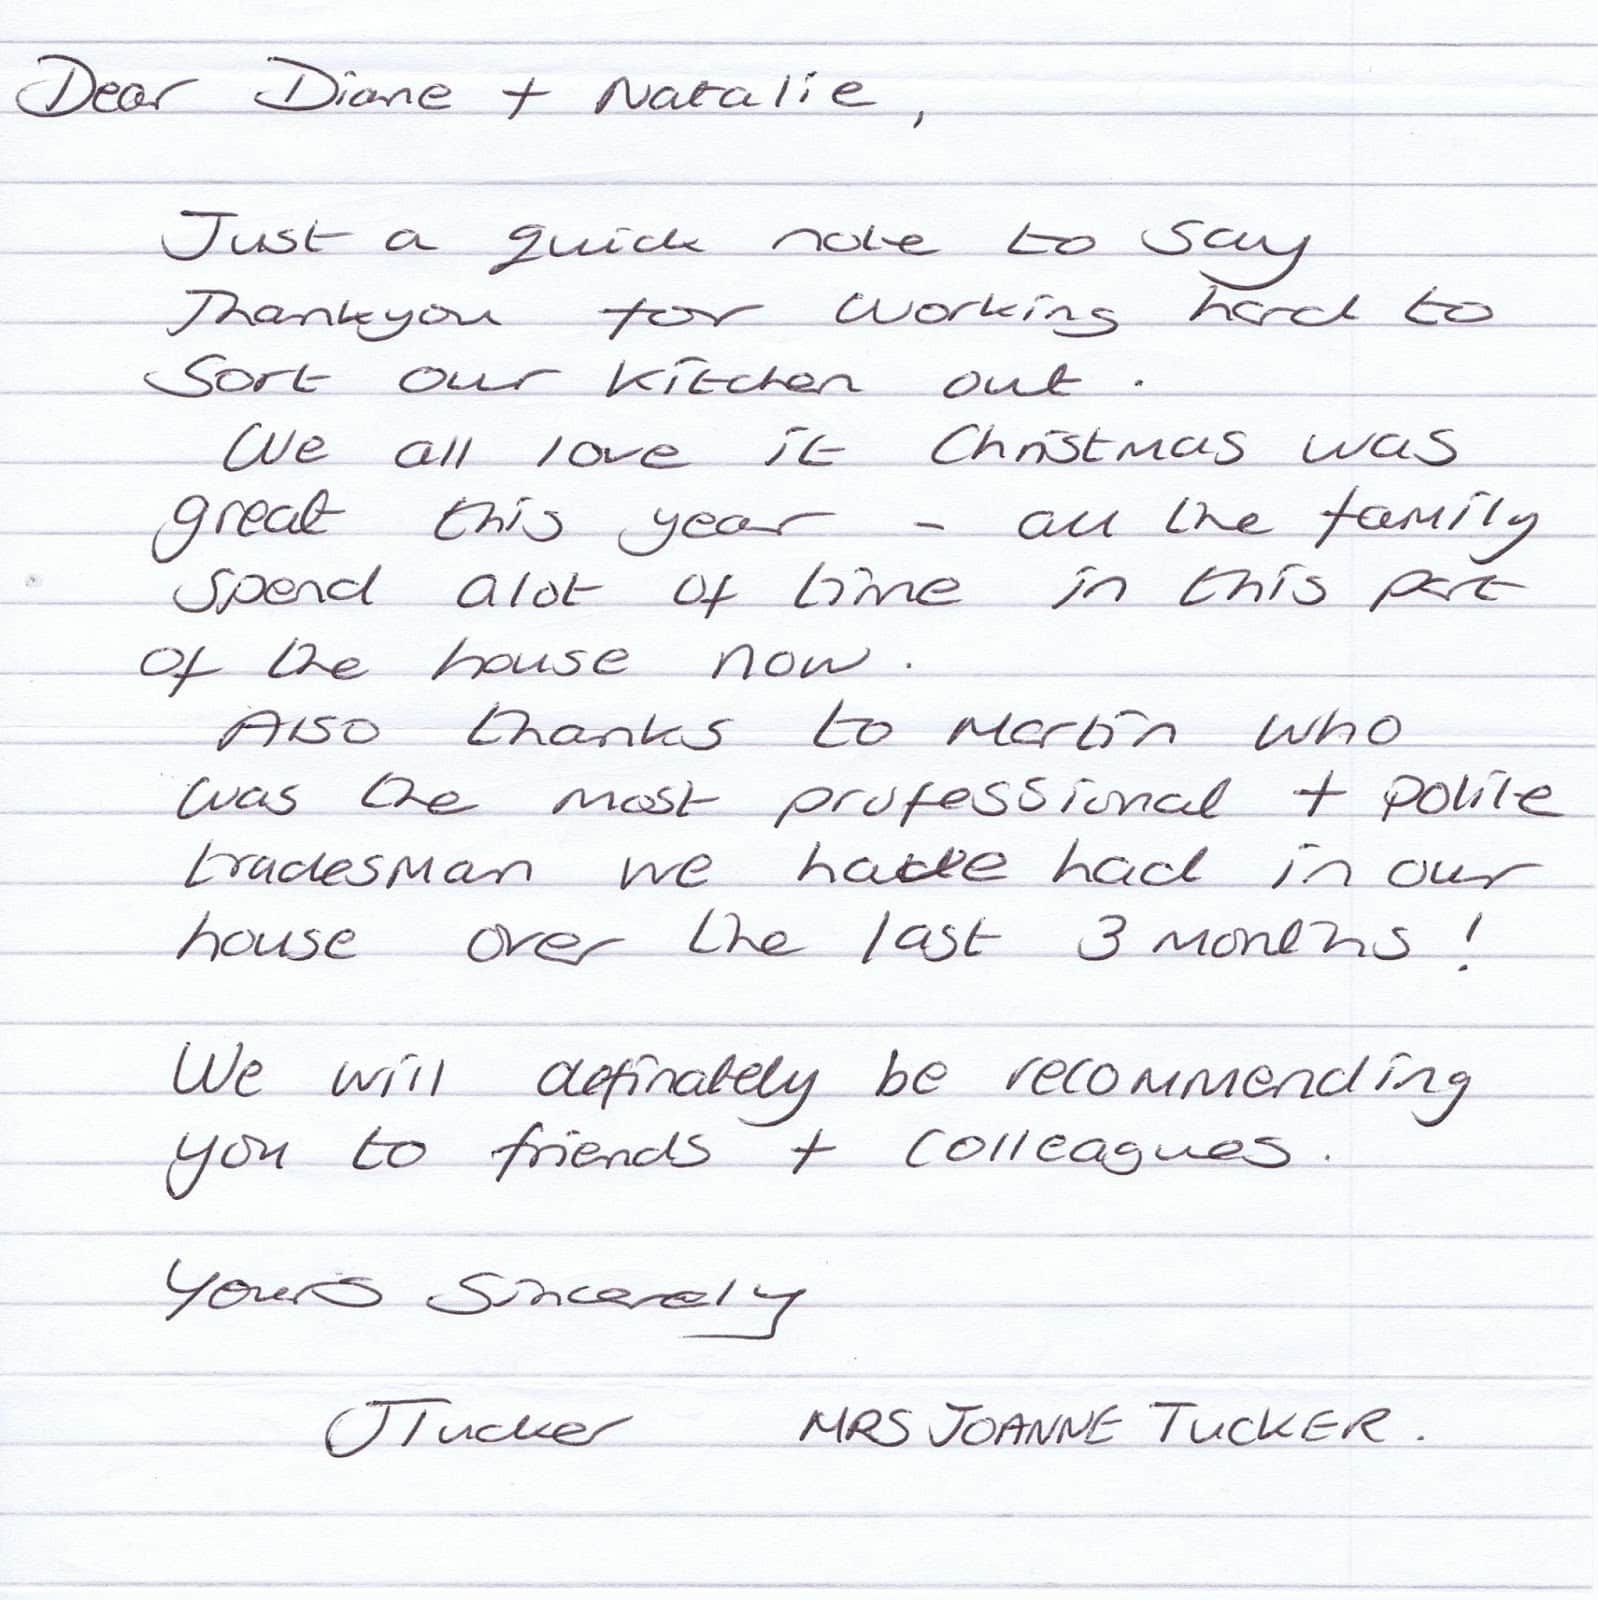 Dear Diane + Natalie,
Just a quick note to say
Thankyou for working hard to
sort our kitchen out.
We all love it Christmas was
great this year - all the family
spend alot of time in this part
of the house now.
Also thanks to Martin who
was the most professional + polite
tradesman we have had in our
house over the last 3 months!
We will definately be recommending
you to friends + colleagues.
Yours Sincerely
JTucker MRS JOANNE TUCKER.